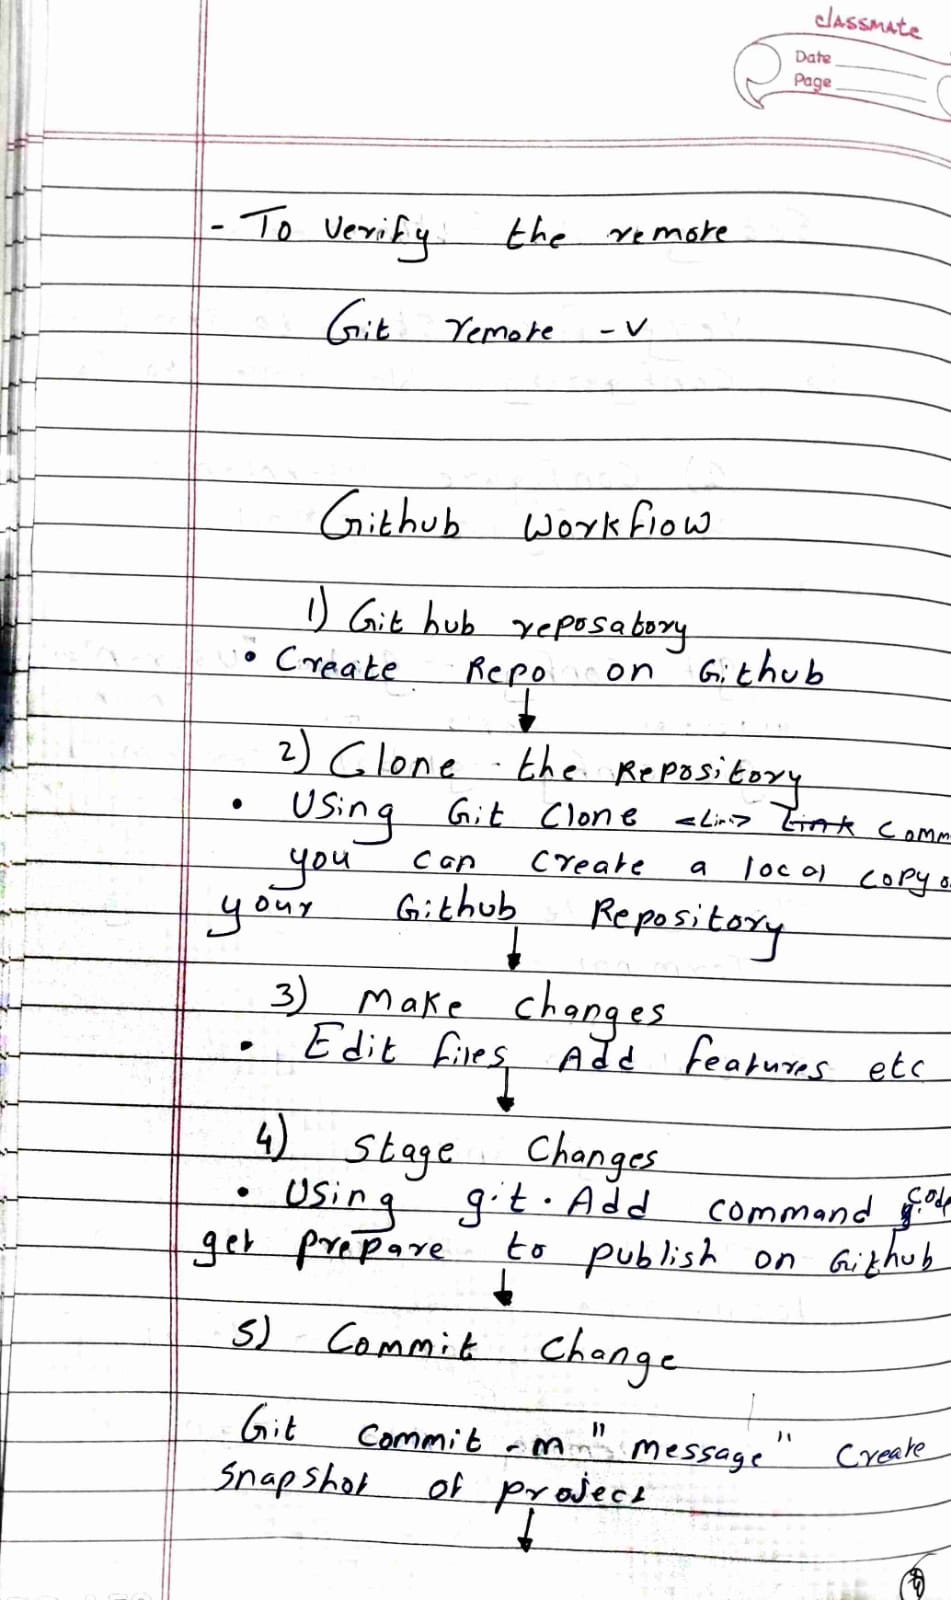 classmate
Date
Page
- To verify the remote
Git remote -v
Github workflow
1) Git hub reposatory
• Create Repo on Github
2) Clone the Repository
• Using Git Clone <Lin> Link Comm
you can create a local copy o
your Github Repository
3) Make Changes
• Edit files, Add features etc
4) Stage Changes
• Using git. Add command code
get prepare to publish on Github
5) Commit Change
Git commit -m "message" Create
Snapshot of project